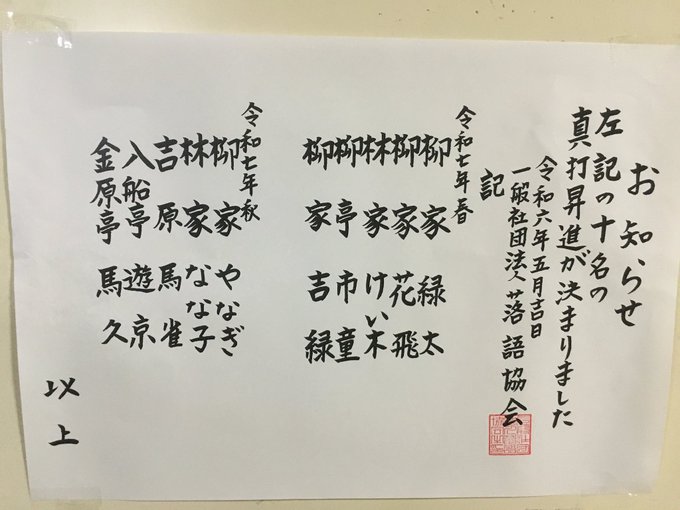 お知らせ
左記の十名の
真打昇進が決まりました
令和六年五月吉日
一般社団法人落語協会
記
令和七年春
柳家 緑太
柳家 花飛
林家 けい木
柳亭 市童
柳家 吉緑
令和七年秋
柳家 やなぎ
林家 なな子
吉原 馬雀
八船亭 遊京
金原亭 馬久
以上